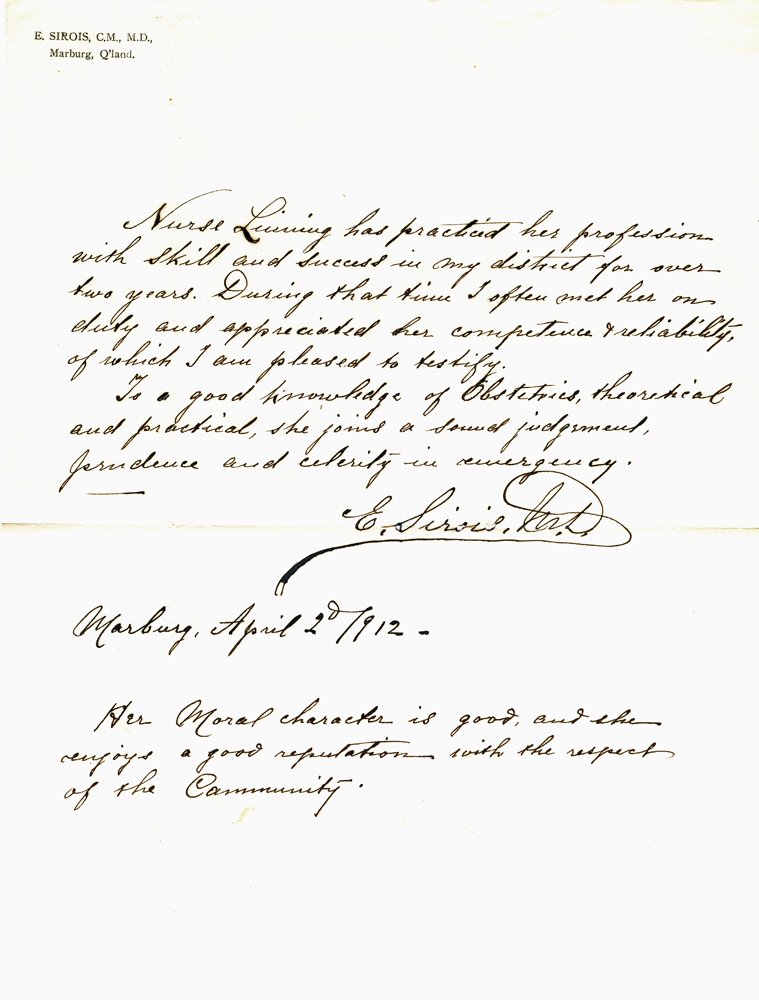 E. SIROIS, C.M., M.D.,
Marburg, Q'land.
Nurse Lining has practiced her profession
with skill and success in my district for over
two years. During that time I often met her on
duty and appreciated her competence & reliability,
of which I am pleased to testify.
To a good knowledge of Obstetrics, theoretical
and practical, she joins a sound judgement,
prudence and celerity in emergency.
E. Sirois. M.D.
Marburg, April 2d/912 -
Her Moral character is good, and she
enjoys a good reputation with the respect
of the Community.